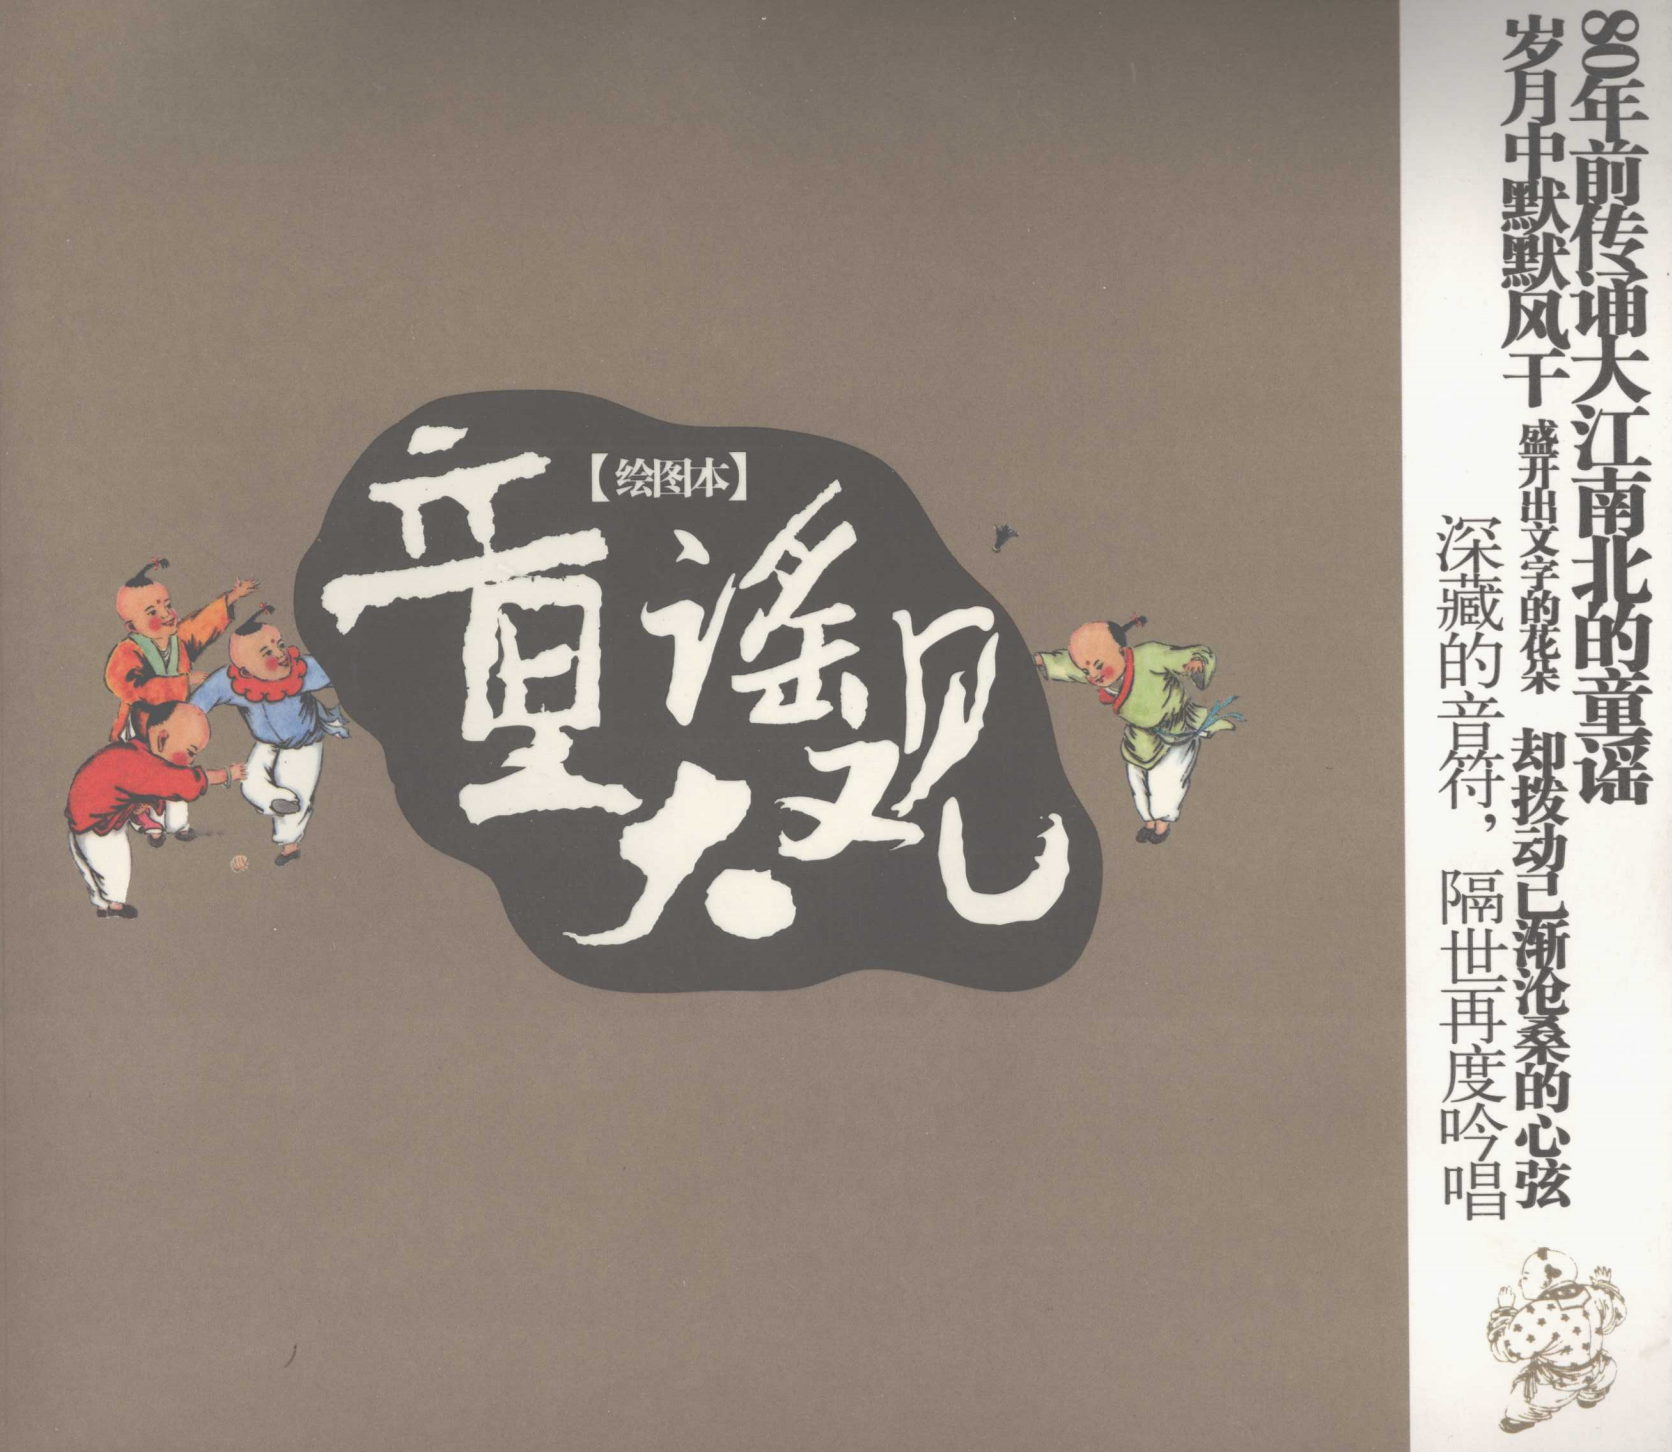 【绘图本】
童谣
大观
80年前传诵大江南北的童谣
岁月中默默风干 盛开出文字的花朵 却拨动已渐沧桑的心弦
深藏的音符，隔世再度吟唱